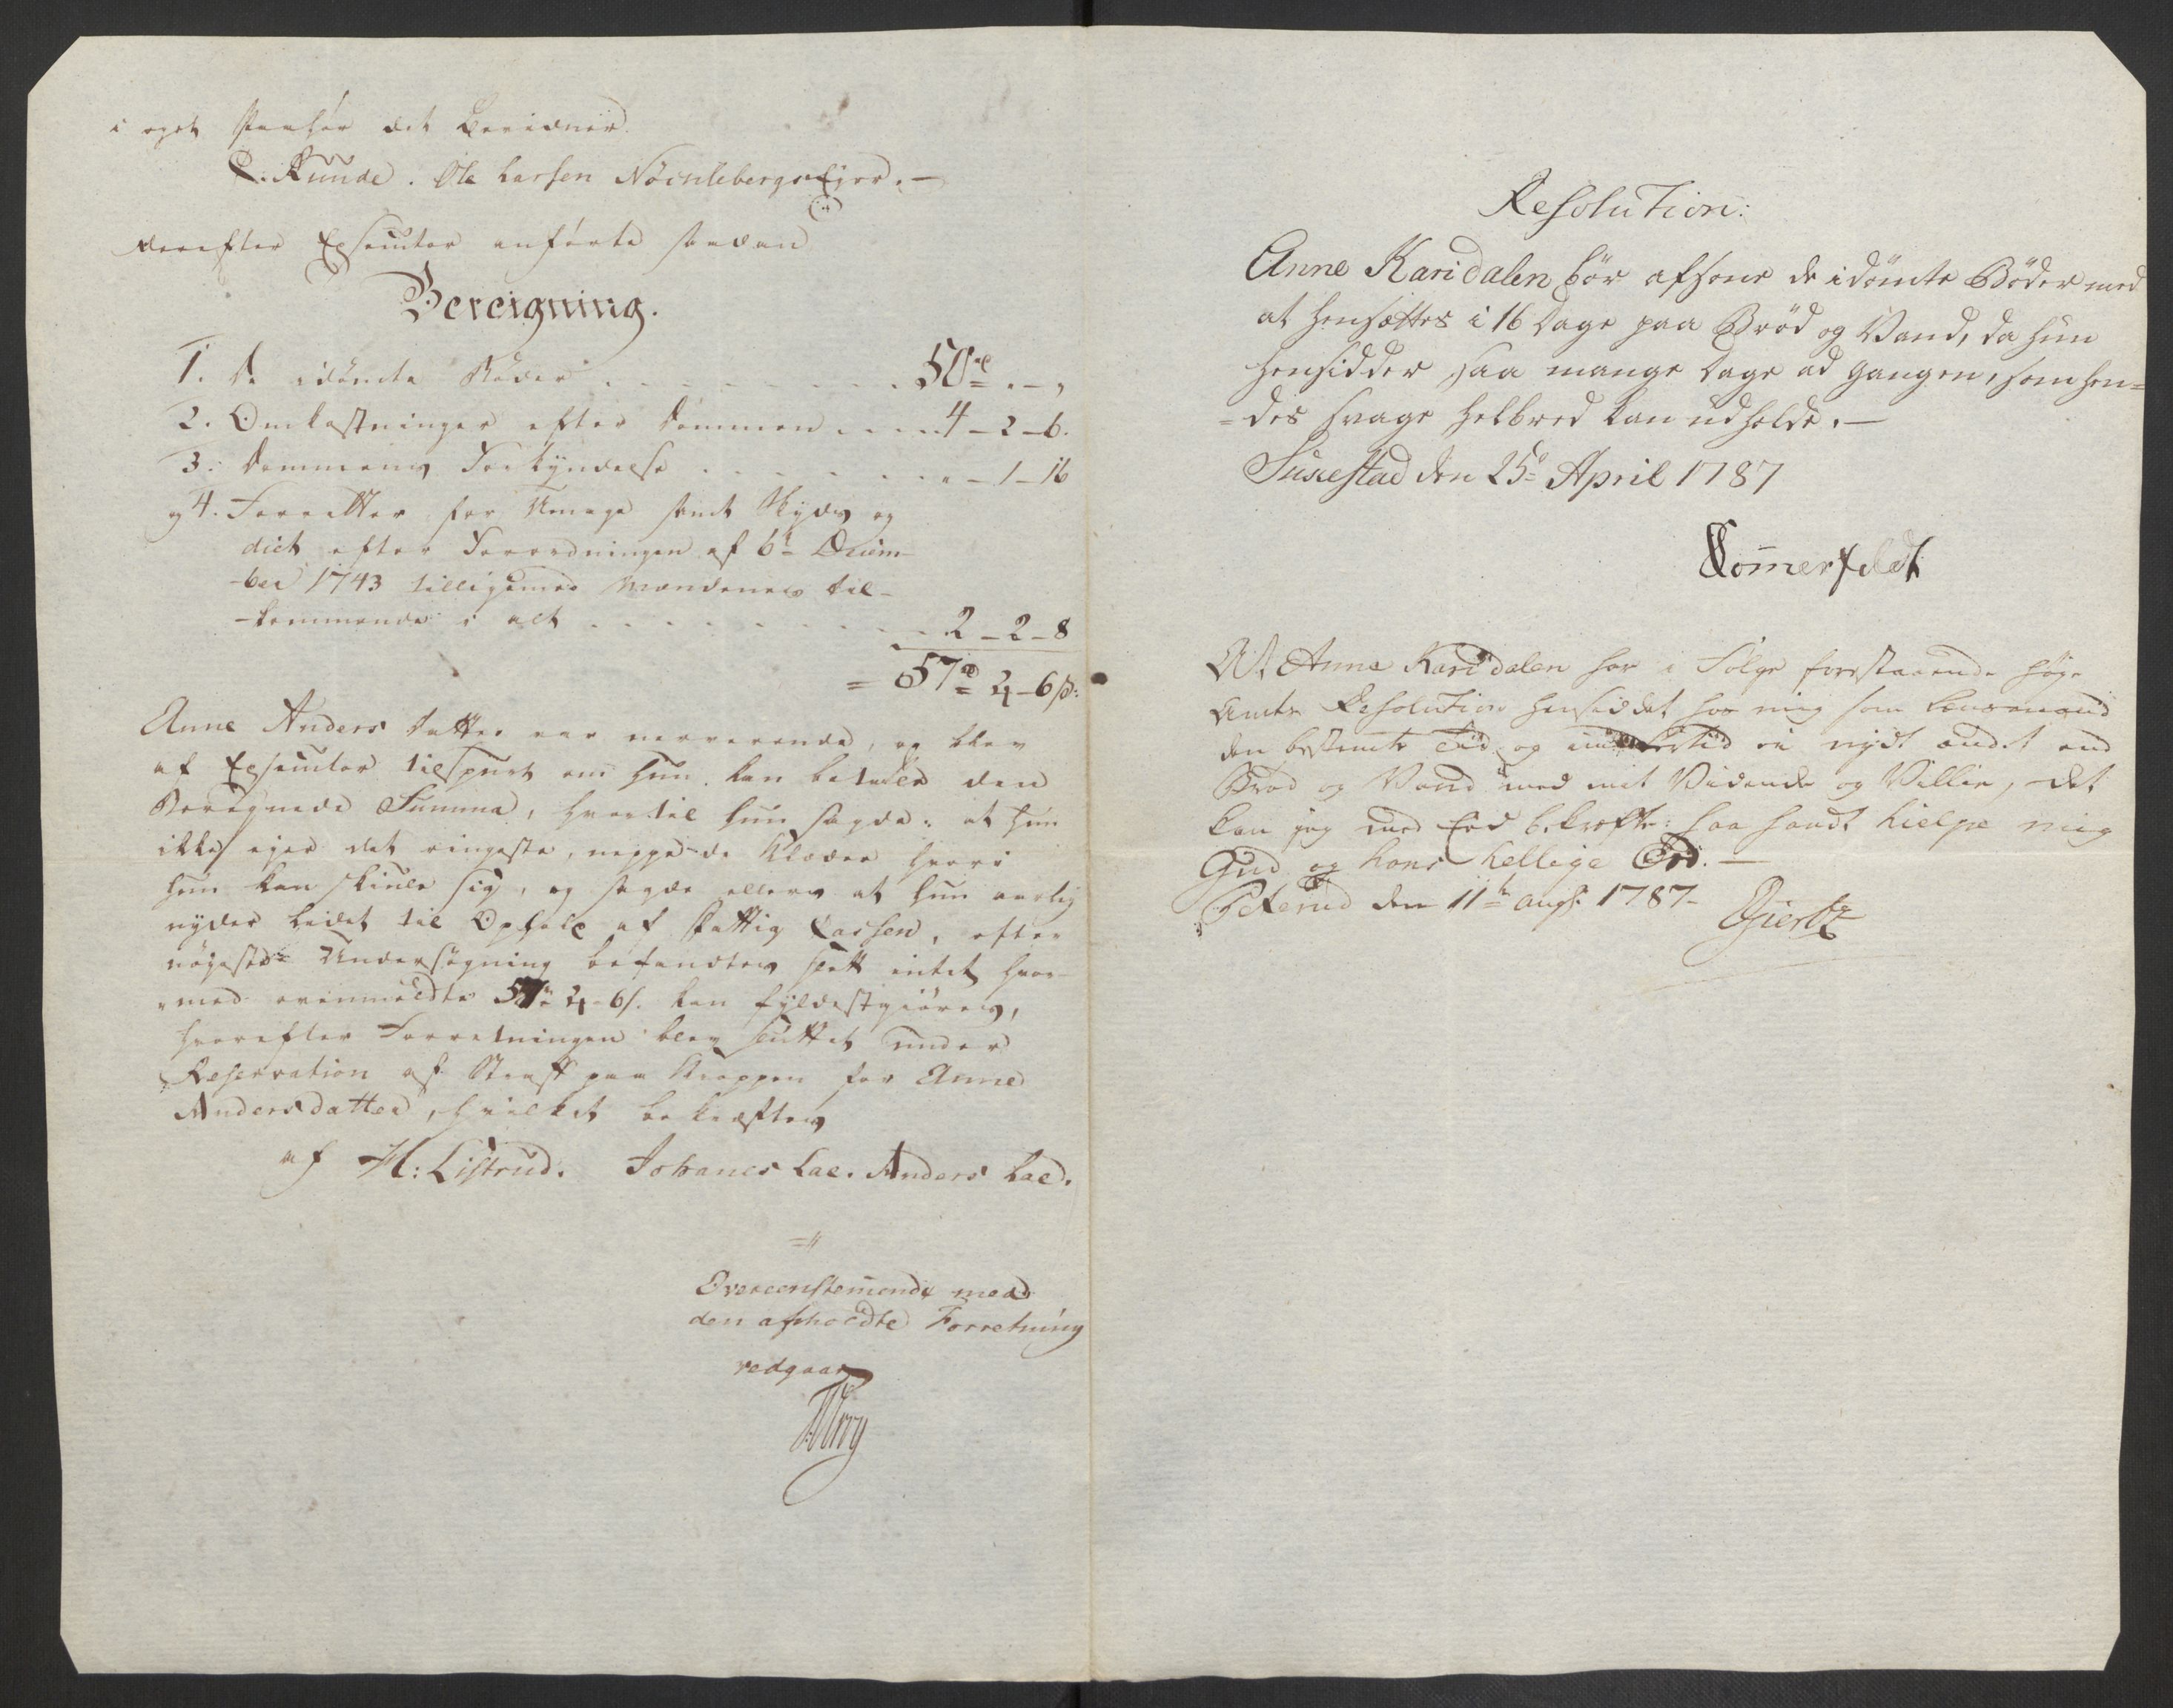 i eget Paahør det bevidner
C. Runde. Ole Larsen Nöcklebergs Ejer.
derefter Exsecutor anførte saadan
Bereigning.
1. De idömte Böder . . . . . . . . 50 rd . — ,
2. Omkostninger efter Dommen . . . . 4 – 2 – 6.
3. Dommens Forkyndelse . . . . . . . . – 1 – 16
og 4. Forretter for Umage samt Skyds og
diet efter Forordningen af 6te Decem-
-ber 1743 tilligemed Mændenes til-
-kommende i alt . . . . . . . . . 2 – 2 – 8
= 57 rd 2 – 6 s:
Anne Anders datter var nærværende, og blev
af Exsecutor tilspurt om hun kan betale den
Beregnede Summa, hvortil hun sagde: at hun
ikke ejer det ringeste, neppe de Klæder hvori
hun kan skiule sig, og sagde ellers at hun aarlig
nyder lidet til Ophold af Fattig Cassen, efter
nøyeste Undersøgning befandtes slett intet hvor-
-med ovenmeldte 57 rd 2 – 6 s. kan fyldestgiøres,
hvorefter Forretningen blev sluttet under
Reservation af Straff paa Kroppen for Anne
Andersdatter, hvilket bekræftes
af H: Listrud. Johanes Lae. Anders Lae.
Overeenstemende med
den afholdte Forretning
vedgaar
Resolution:
Anne Karidalen bör afsone de idömte Böder med
at hensættes i 16 Dage paa Bröd og Vand, da hun
hensidder saa mange Dage ad gangen, som hen=
=des svage Helbred kan udholde. —
Tuxestad den 25de April 1787
Sommerfeldt
At Anne Karidalen har i Følge forestaaende høye
Amts Resolution hensiddet hos mig som Lensmand
den bestemte Tid og imidlertid ei nydt andet end
Brød og Vand med mit Vidende og Villie, det
kan jeg med Eed bekræfte: saa sandt hielpe mig
Gud og hans hellige Ord. —
Peterud den 11te augs. 1787 –